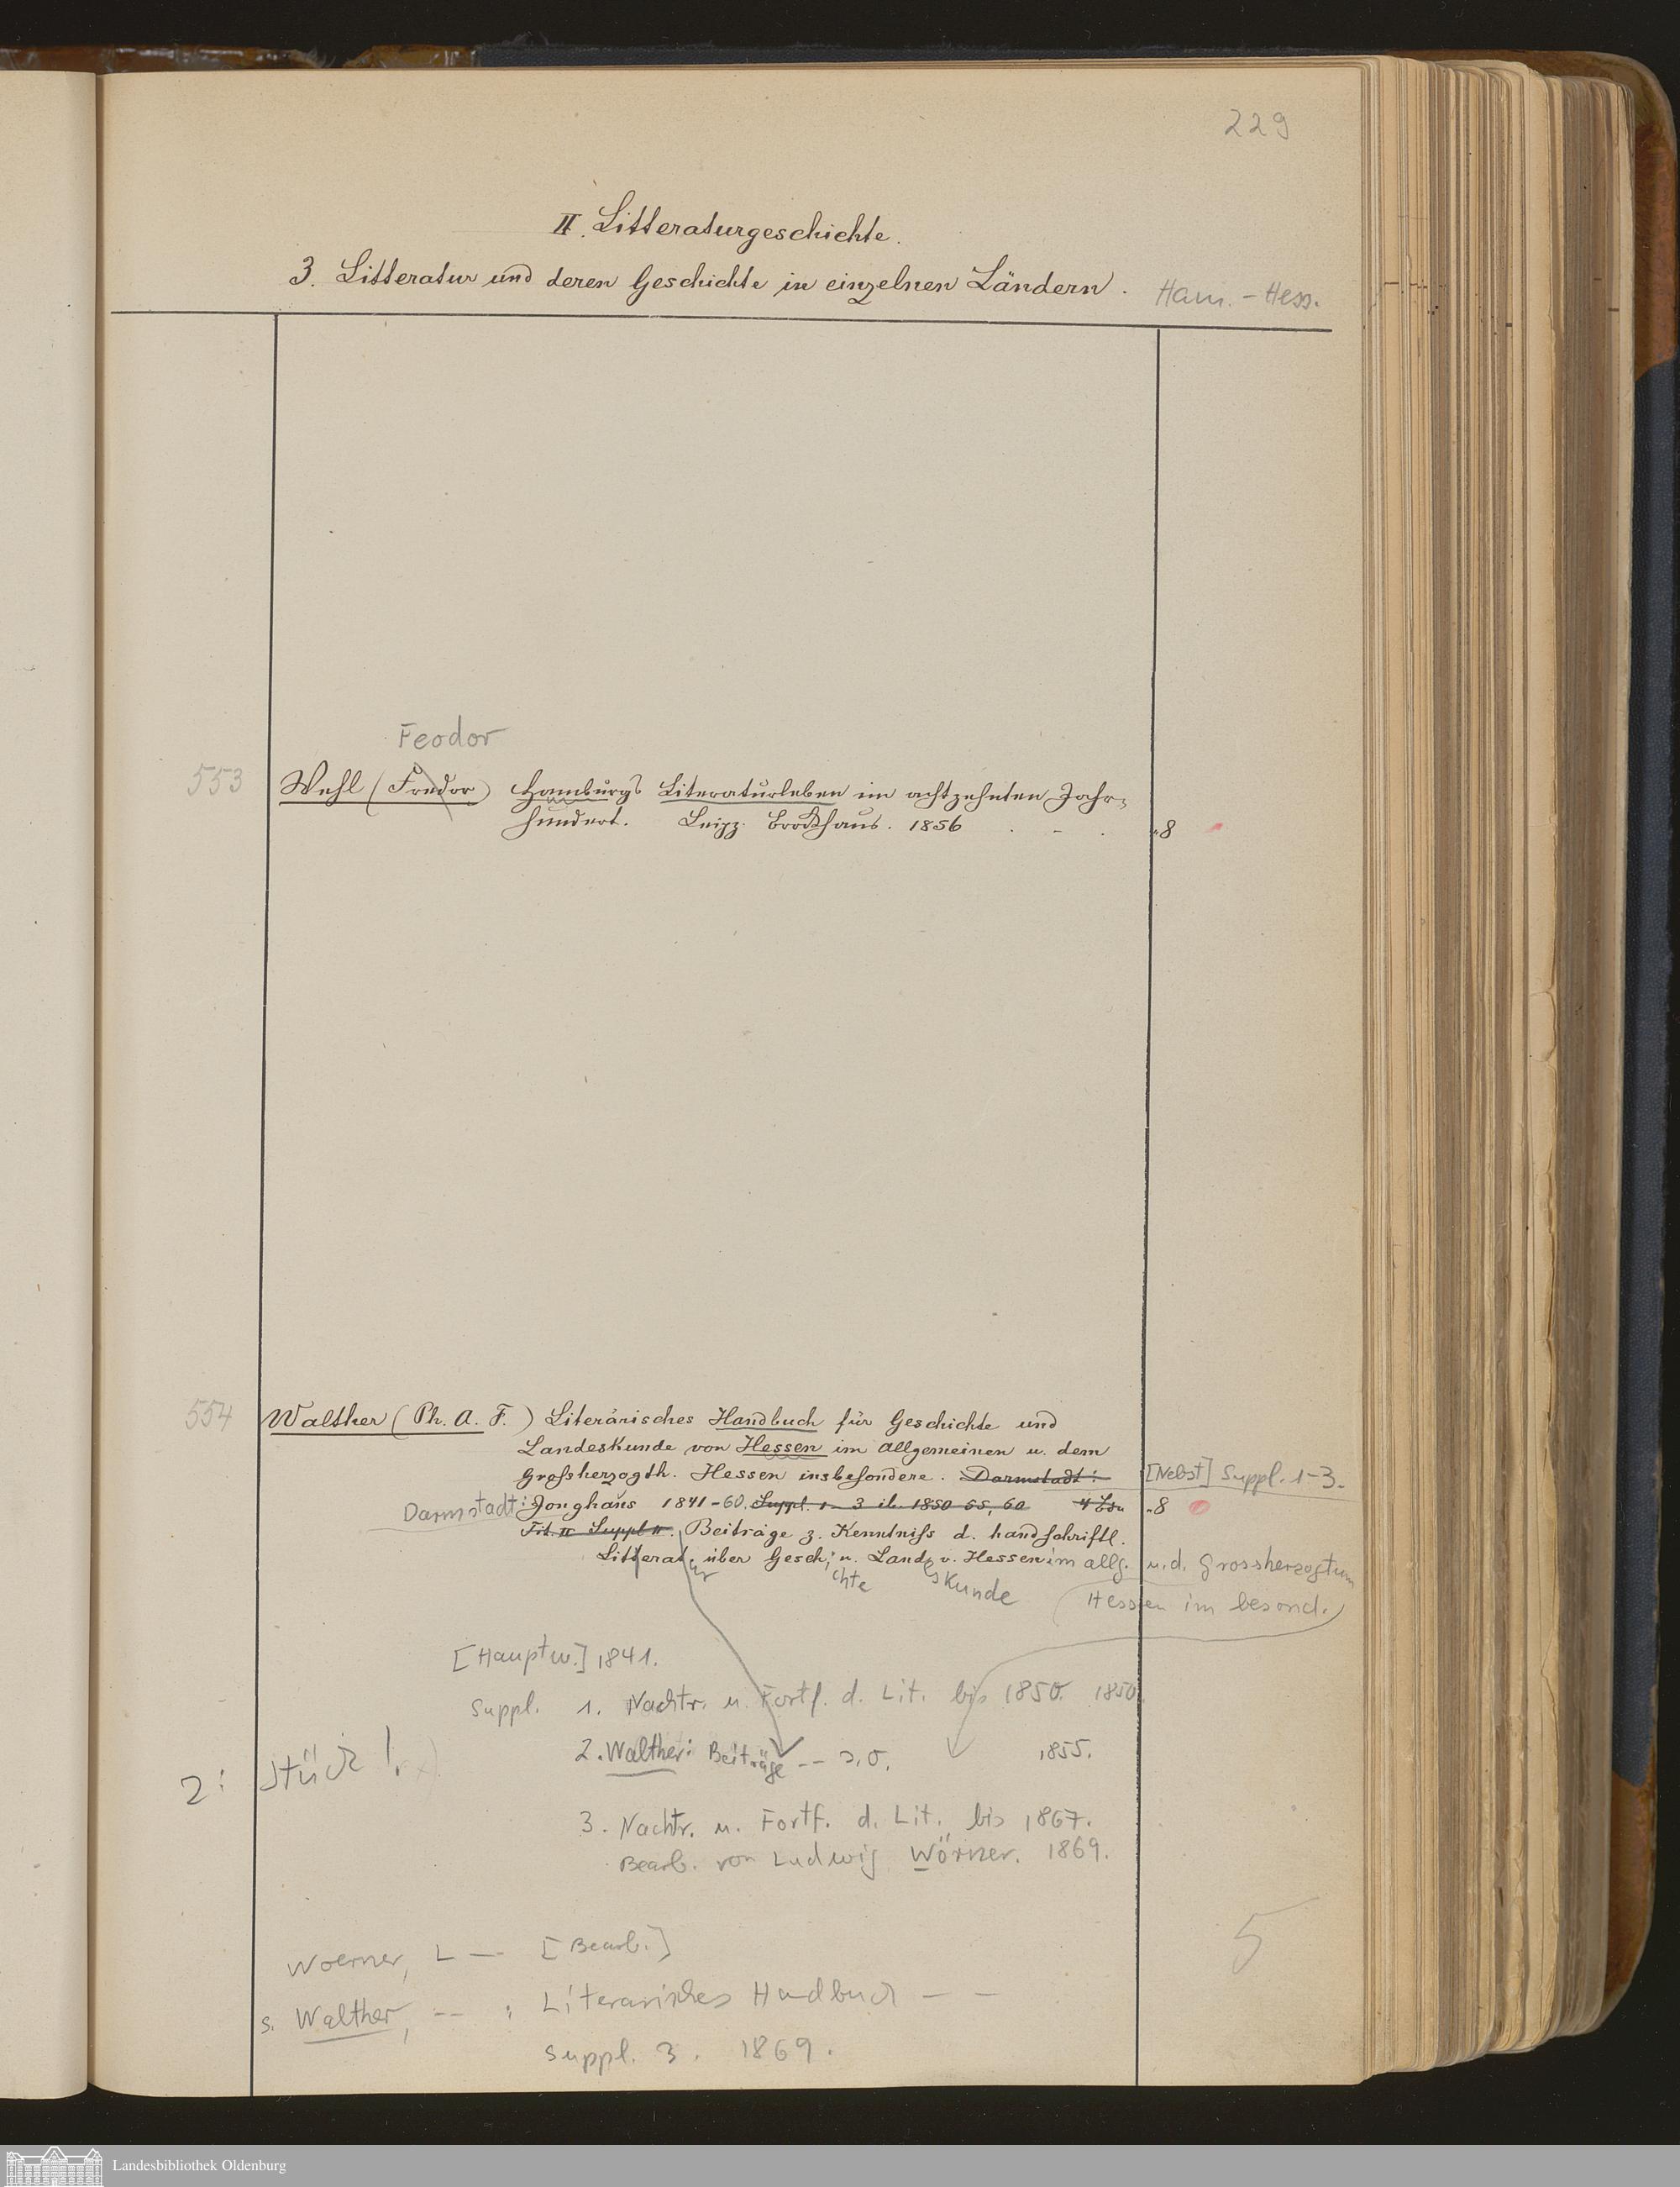 229
II. Litteraturgeschichte.
3. Litteratur und deren Geschichte in einzelnen Ländern. Ham. - Hess.
Feodor
553 Wehl (Fredor) Hamburgs Literaturleben im achtzehnten Jahr-
hundert. Leipz. Brockhaus. 1856 . - . 8
554 Walther (Ph. A. F.) Literärisches Handbuch für Geschichte und
Landeskunde von Hessen im Allgemeinen u. dem
Großherzogth. Hessen insbesondere. Darmstadt: [Nebst] Suppl. 1-3.
Darmstadt: Jonghaus 1841-60. Suppl. 1-3 ib. 1850 55, 60 8
Tit. II Suppl II. Beiträge z. Kenntniß d. handschriftl.
Litterat. über Gesch. u. Land v. Hessen im allg. u. d. Grossherzogtum
ur chte skunde Hessen im besond.
[Hauptw.] 1841.
Suppl. 1. Nachtr. u. Fortf. d. Lit. bis 1850. 1850
2. Walther: Beiträge -- s. o. 1855.
2: Stück!
3. Nachtr. u. Fortf. d. Lit. bis 1867.
Bearb. von Ludwig Wörner. 1869.
5
Woerner, L — [Bearb.]
s. Walther, -- : Literarisches Handbuch — —
Suppl. 3. 1869.
Landesbibliothek Oldenburg